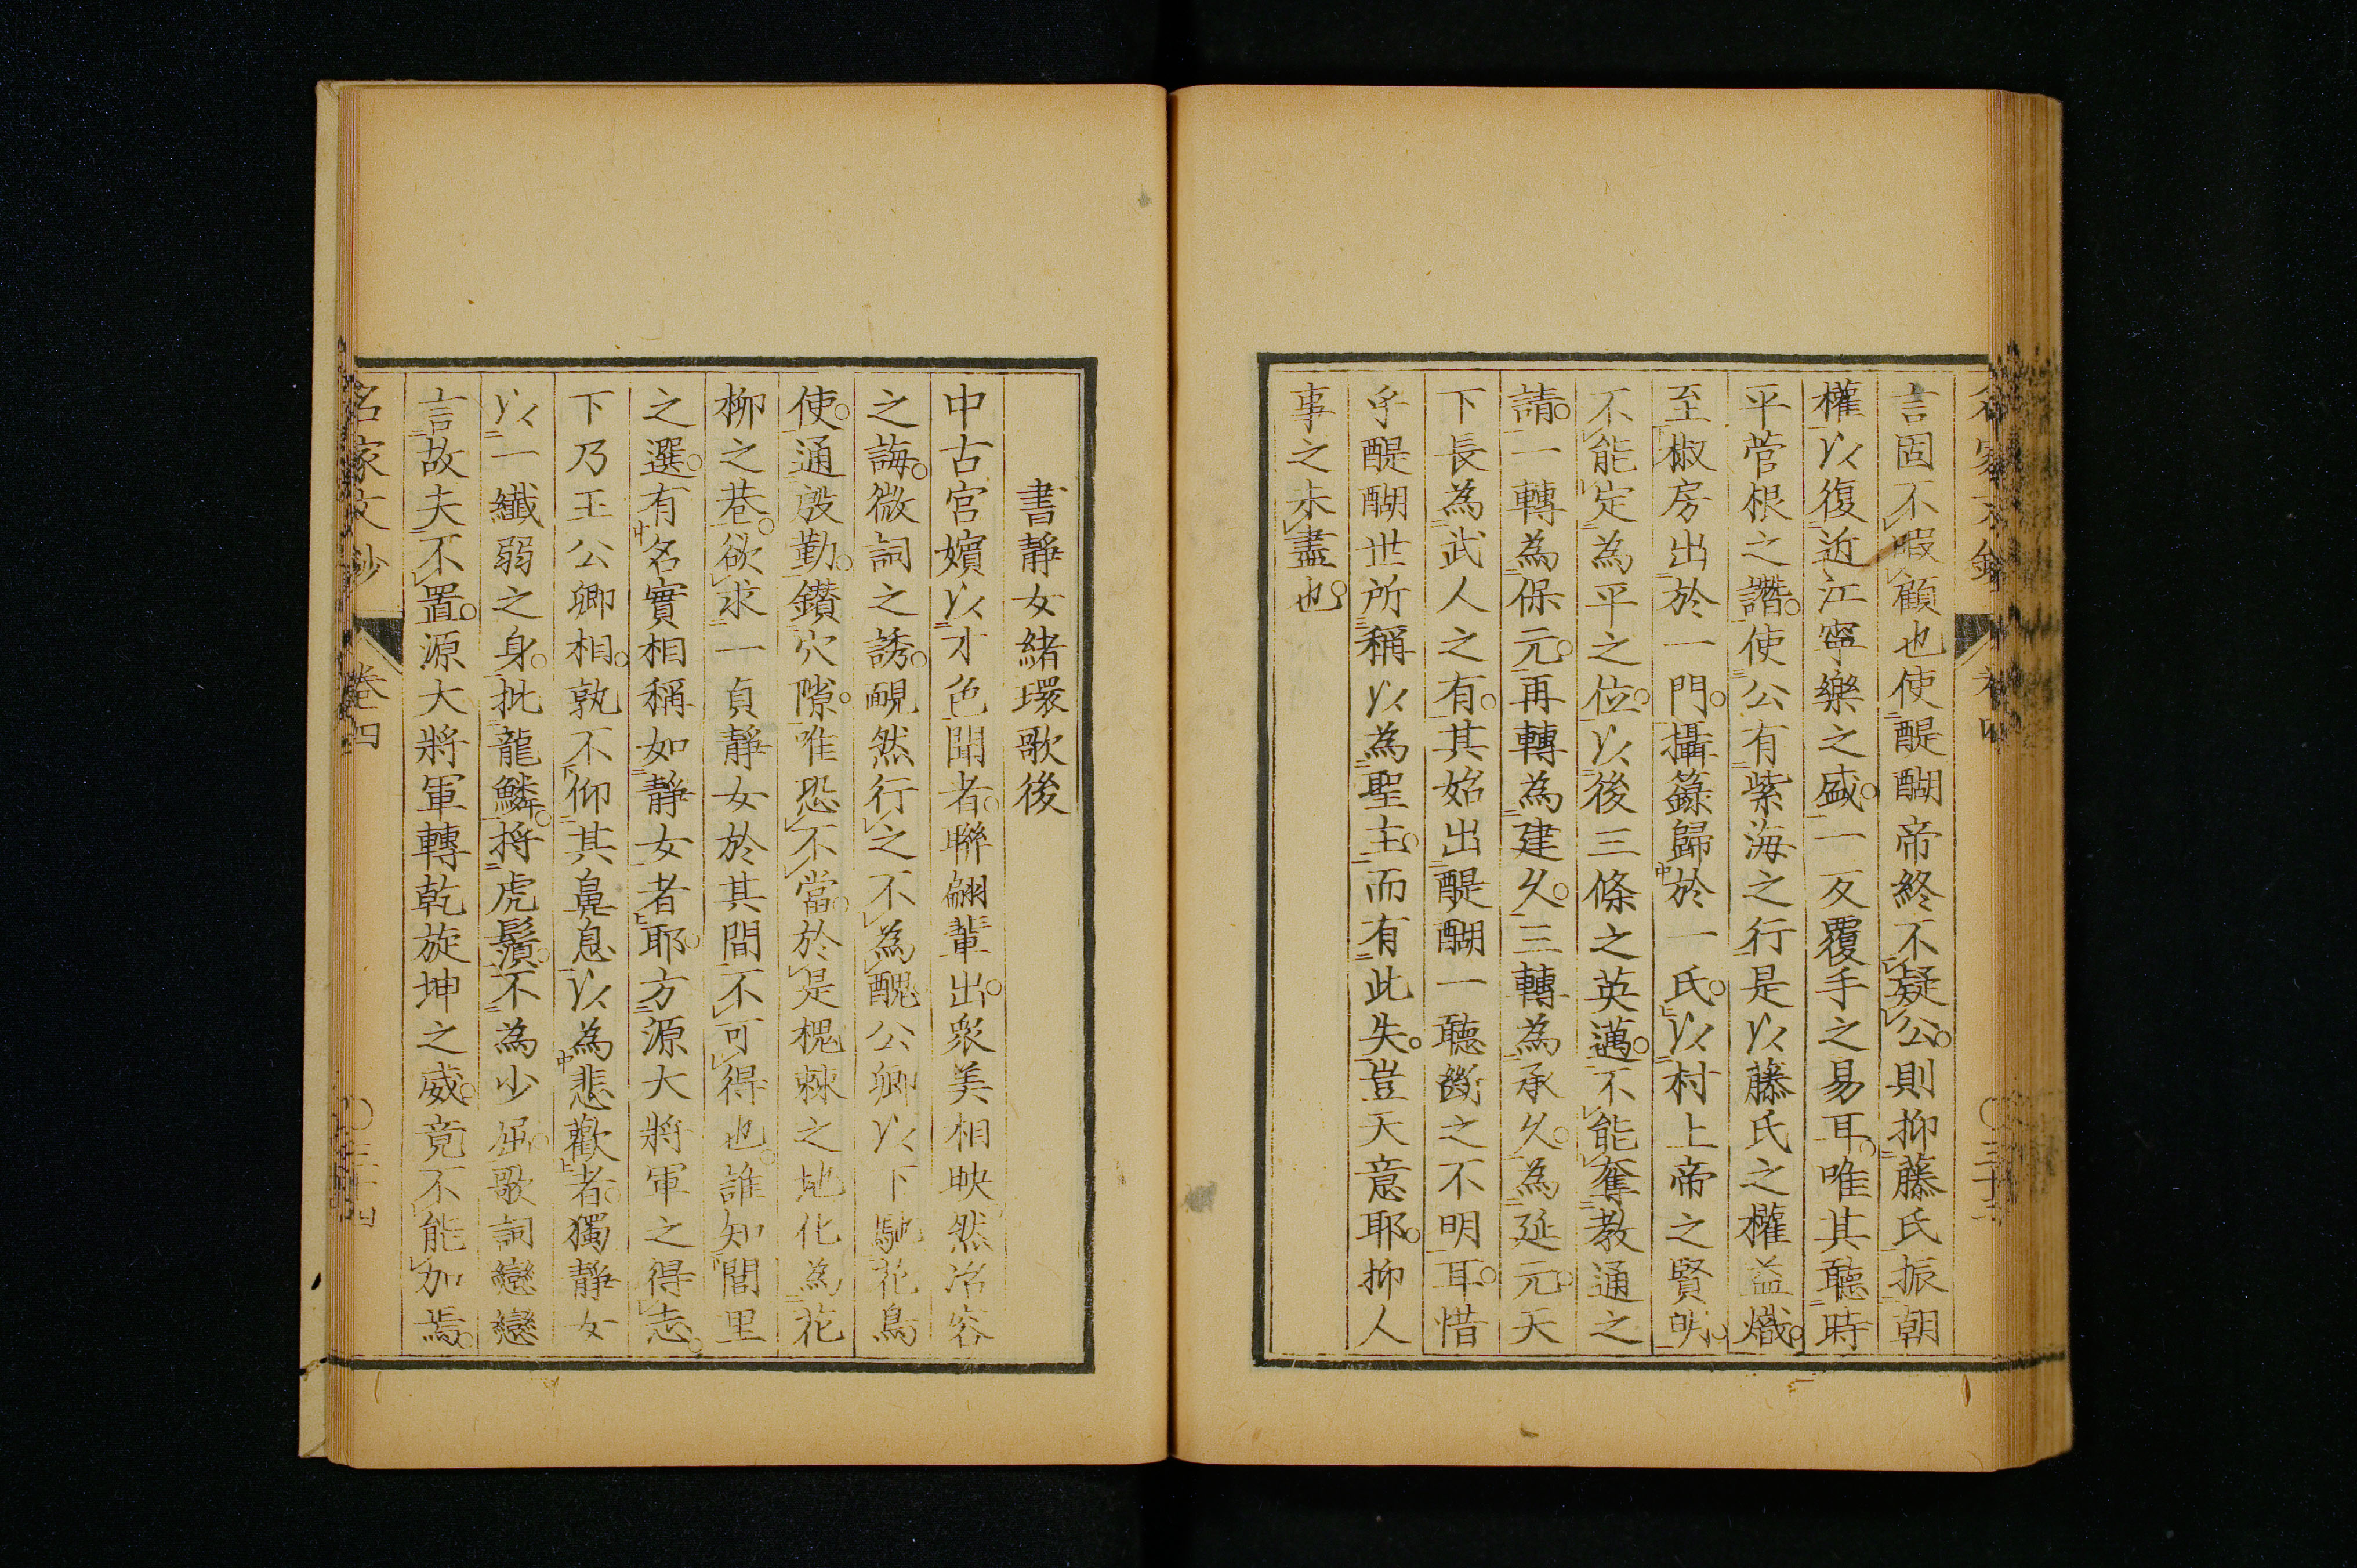 言固不暇顧也使醍醐帝終不疑公則抑藤氏振朝
權以復近江寧樂之盛一反覆手之易耳唯其聽時
平菅根之譖使公有紫海之行是以藤氏之權益熾
至椒房出於一門攝籙歸於一氏以村上帝之賢明
不能定為平之位以後三條之英邁不能奪教通之
請一轉為保元再轉為建久三轉為承久為延元天
下長為武人之有其始出醍醐一聽斷之不明耳惜
乎醍醐世所稱以為聖主而有此失豈天意耶抑人
事之未盡也
書靜女緒環歌後
中古宮嬪以才色聞者聯翩輩出衆美相映然冶容
之誨微詞之誘靦然行之不為醜公卿以下馳花鳥
使通殷勤鑽穴隙唯恐不當於是槐棘之地化為花
柳之巷欲求一貞靜女於其間不可得也誰知閭里
之選有名實相稱如靜女者耶方源大將軍之得志
下乃王公卿相孰不仰其鼻息以為悲歡者獨靜女
以一纖弱之身批龍鱗捋虎鬚不為少屈歌詞戀戀
言故夫不置源大將軍轉乾旋坤之威竟不能加焉
名家文鈔 卷四 三十四